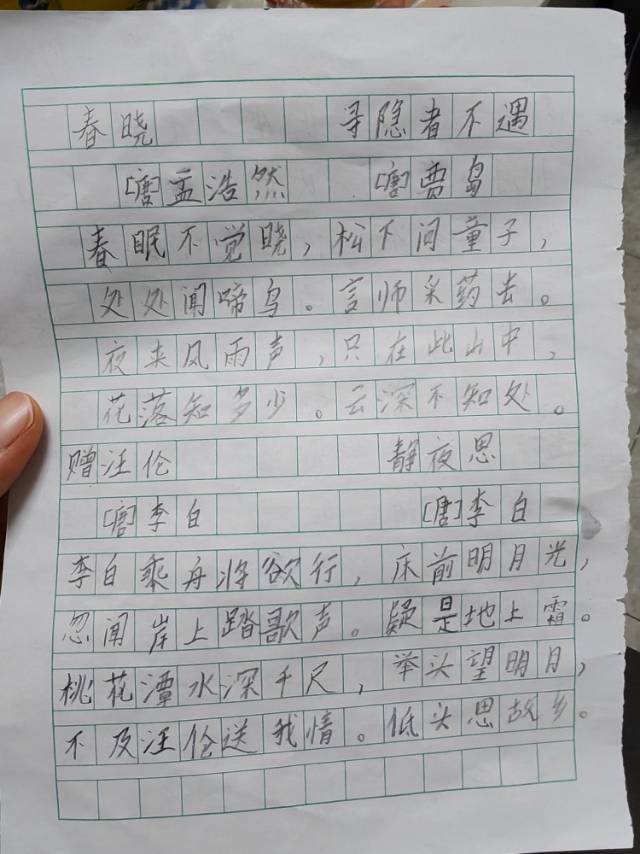 春晓 寻隐者不遇
[唐]孟浩然 [唐]贾岛
春眠不觉晓，松下问童子，
处处闻啼鸟。言师采药去。
夜来风雨声，只在此山中，
花落知多少。云深不知处。
赠汪伦 静夜思
[唐]李白 [唐]李白
李白乘舟将欲行，床前明月光，
忽闻岸上踏歌声。疑是地上霜。
桃花潭水深千尺，举头望明月，
不及汪伦送我情。低头思故乡。